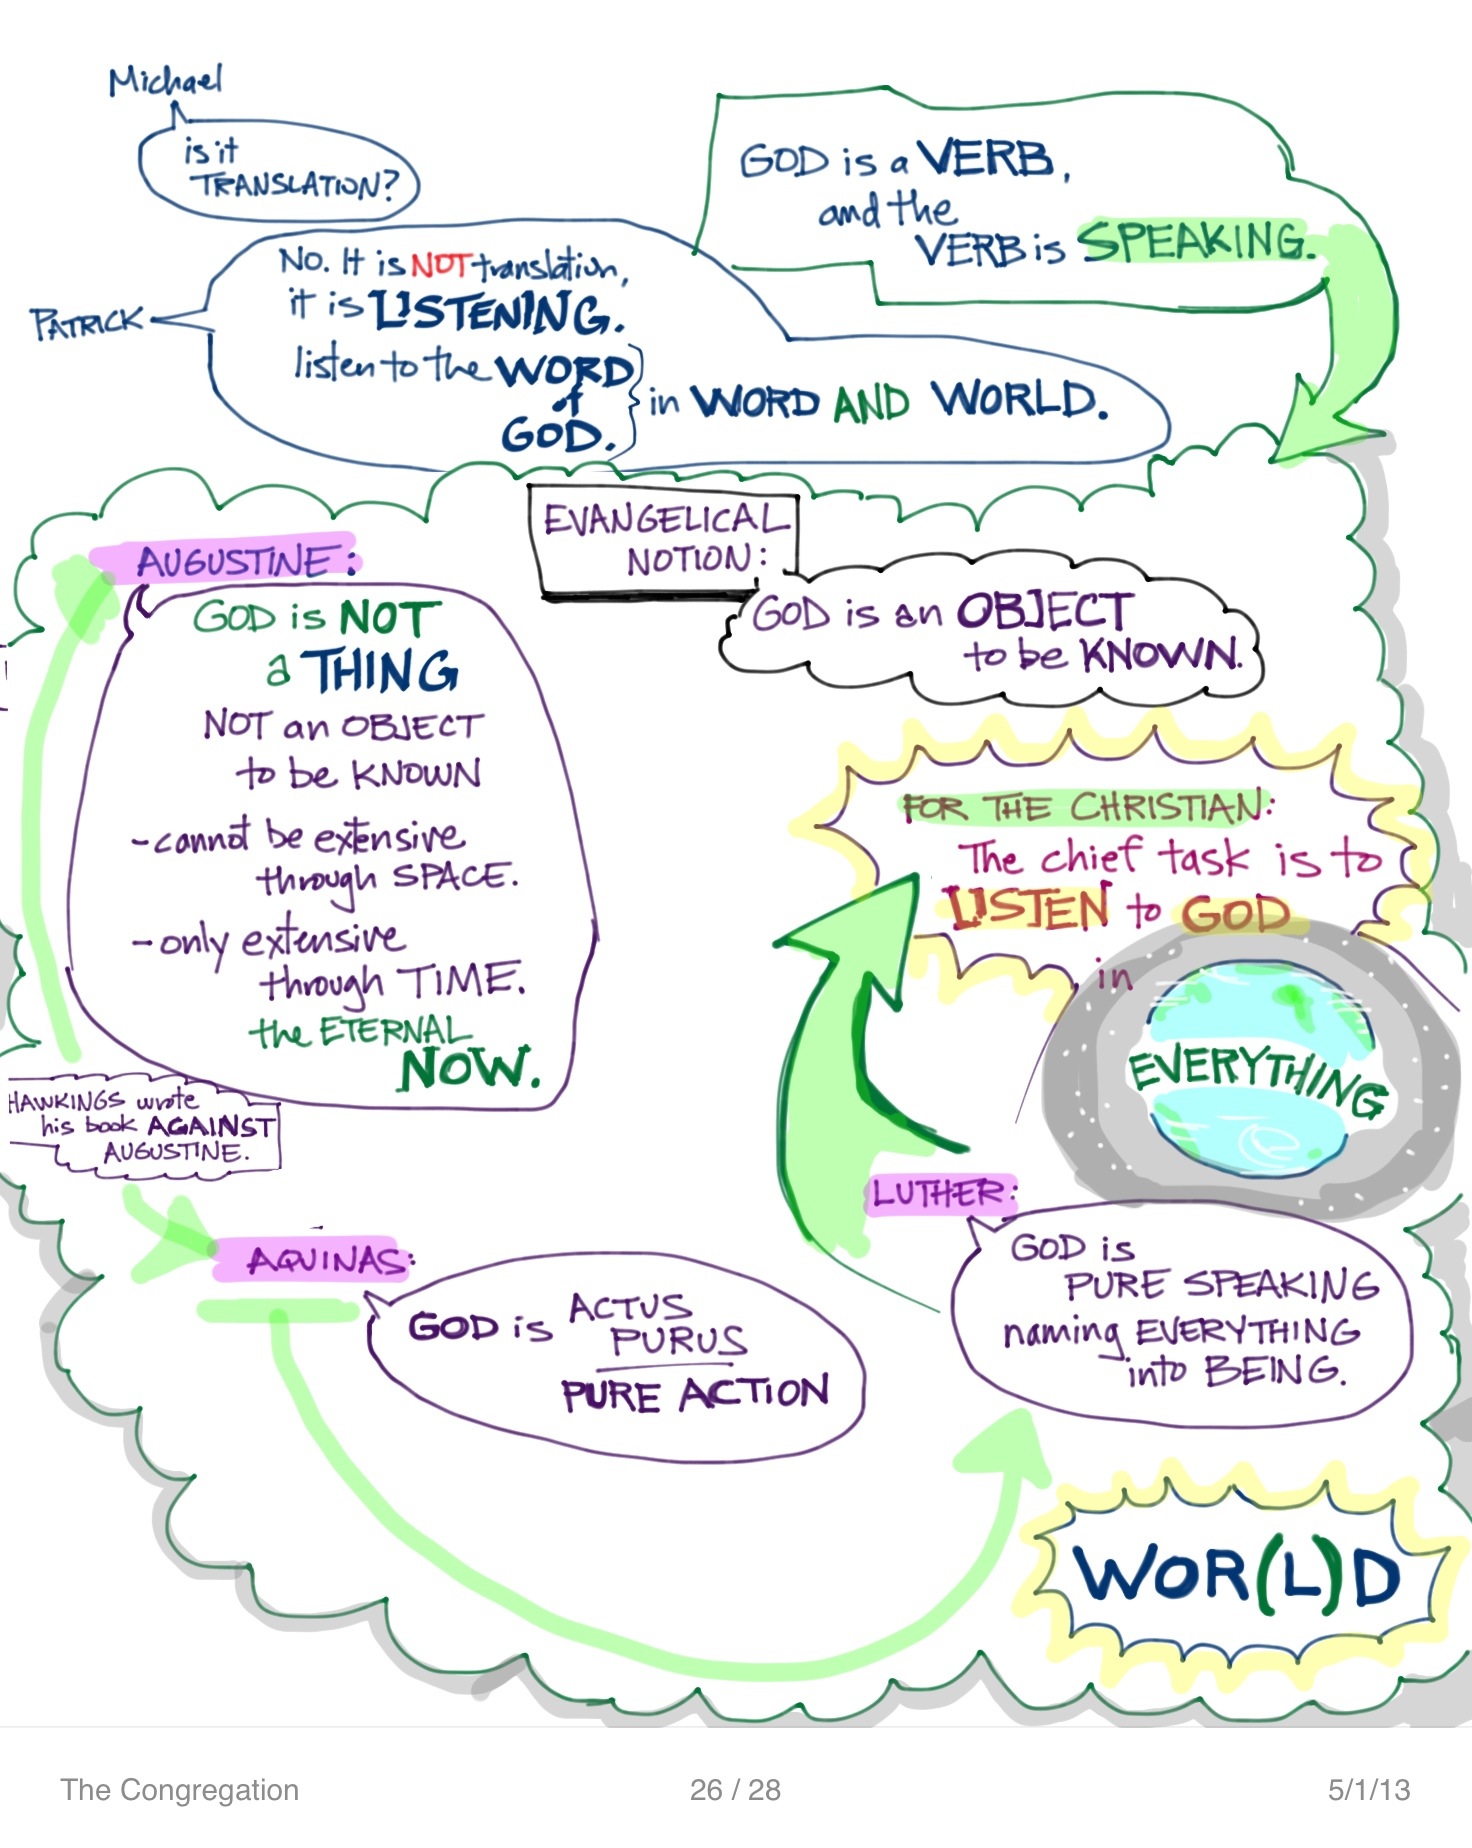 Michael
is it
TRANSLATION?
GOD is a VERB,
and the
VERB is SPEAKING.
PATRICK
No. It is NOT translation,
it is LISTENING.
listen to the WORD
of
GOD.
in WORD AND WORLD.
EVANGELICAL
NOTION:
GOD is an OBJECT
to be KNOWN.
AUGUSTINE:
GOD is NOT
a THING
NOT an OBJECT
to be KNOWN
-cannot be extensive
through SPACE.
-only extensive
through TIME.
the ETERNAL
NOW.
HAWKINGS wrote
his book AGAINST
AUGUSTINE.
FOR THE CHRISTIAN:
The chief task is to
LISTEN to GOD
in
EVERYTHING
AQUINAS:
GOD is ACTUS
PURUS
PURE ACTION
LUTHER:
GOD is
PURE SPEAKING
naming EVERYTHING
into BEING.
WOR(L)D
The Congregation
26 / 28
5/1/13